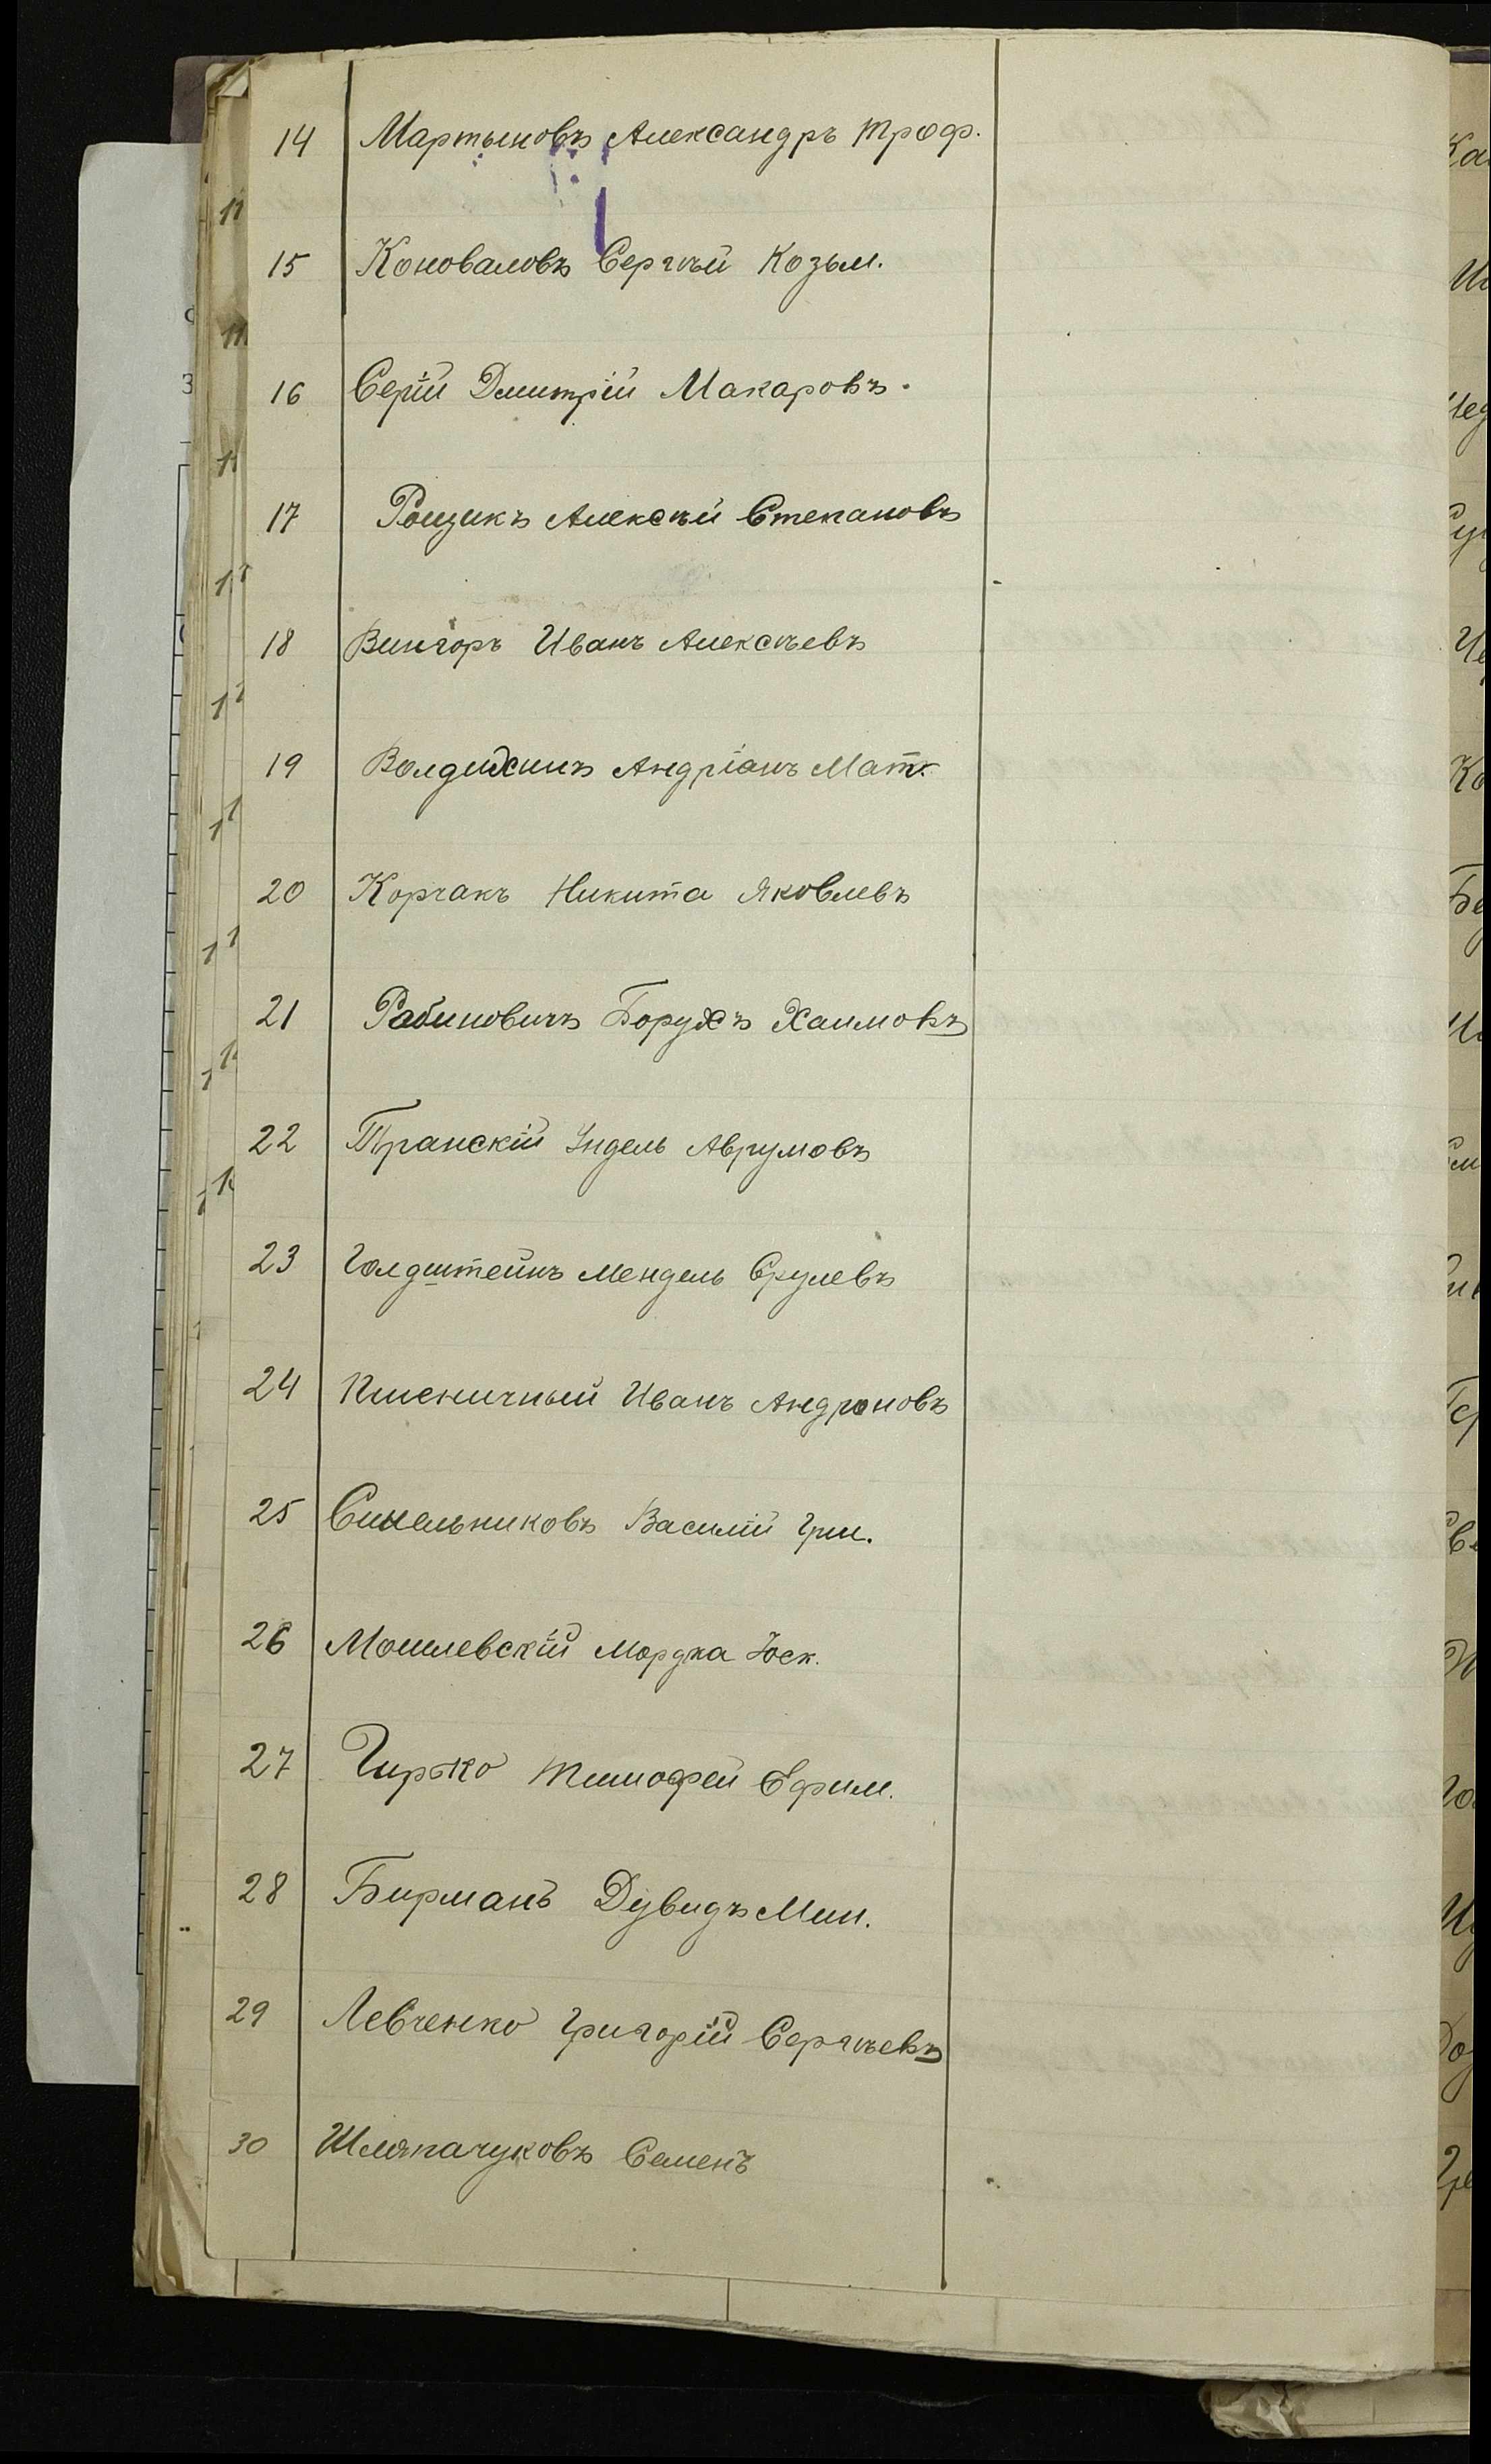 14 Мартыновъ Александръ Троф.
15 Коноваловъ Сергѣй Козьм.
16 Серій Дмитрій Макаровъ.
17 Алексѣй Степановъ
18 Вингоръ Иванъ Алексѣевъ
19 Андріанъ Мат.
20 Корчакъ Никита Яковлевъ
21 Рабиновичъ Борухъ Хаимовъ
22 Транскій Індель Аврумовъ
23 Голдштейнъ Мендель Срулевъ
24 Пшеничный Иванъ Андроновъ
25 Синельниковъ Василій Гри.
26 Мошлевскій Мордка Іоск.
27 Гирько Тимофей Ефим.
28 Бирманъ Дувидъ Мин.
29 Левченко Григорій Сергѣевъ
30 Шляпачуковъ Семенъ